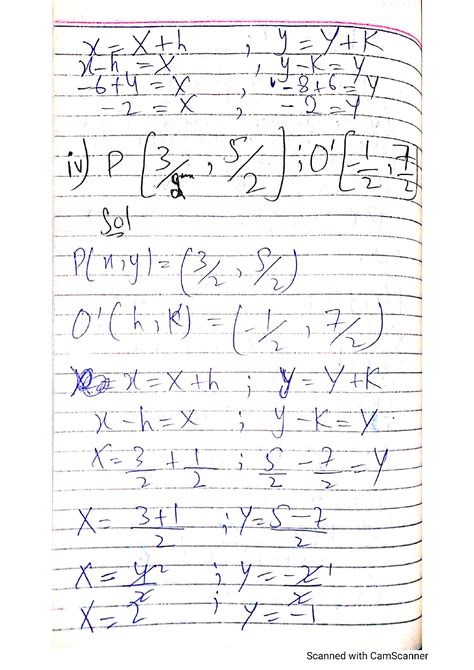 x = X + h ; y = Y + K
x - h = X ; y - K = Y
-6 + 4 = X ; -8 + 6 = Y
-2 = X ; -2 = Y
iv) P [3/2 , 5/2] ; O' [-1/2 , 7/2]
Sol
P(x, y) = (3/2 , 5/2)
O'(h, K) = (-1/2 , 7/2)
x = X + h ; y = Y + K
x - h = X ; y - K = Y
X = 3/2 + 1/2 ; 5/2 - 7/2 = Y
X = 3+1/2 ; Y = 5-7/2
X = 4/2 ; Y = -2/2
X = 2 ; Y = -1
Scanned with CamScanner